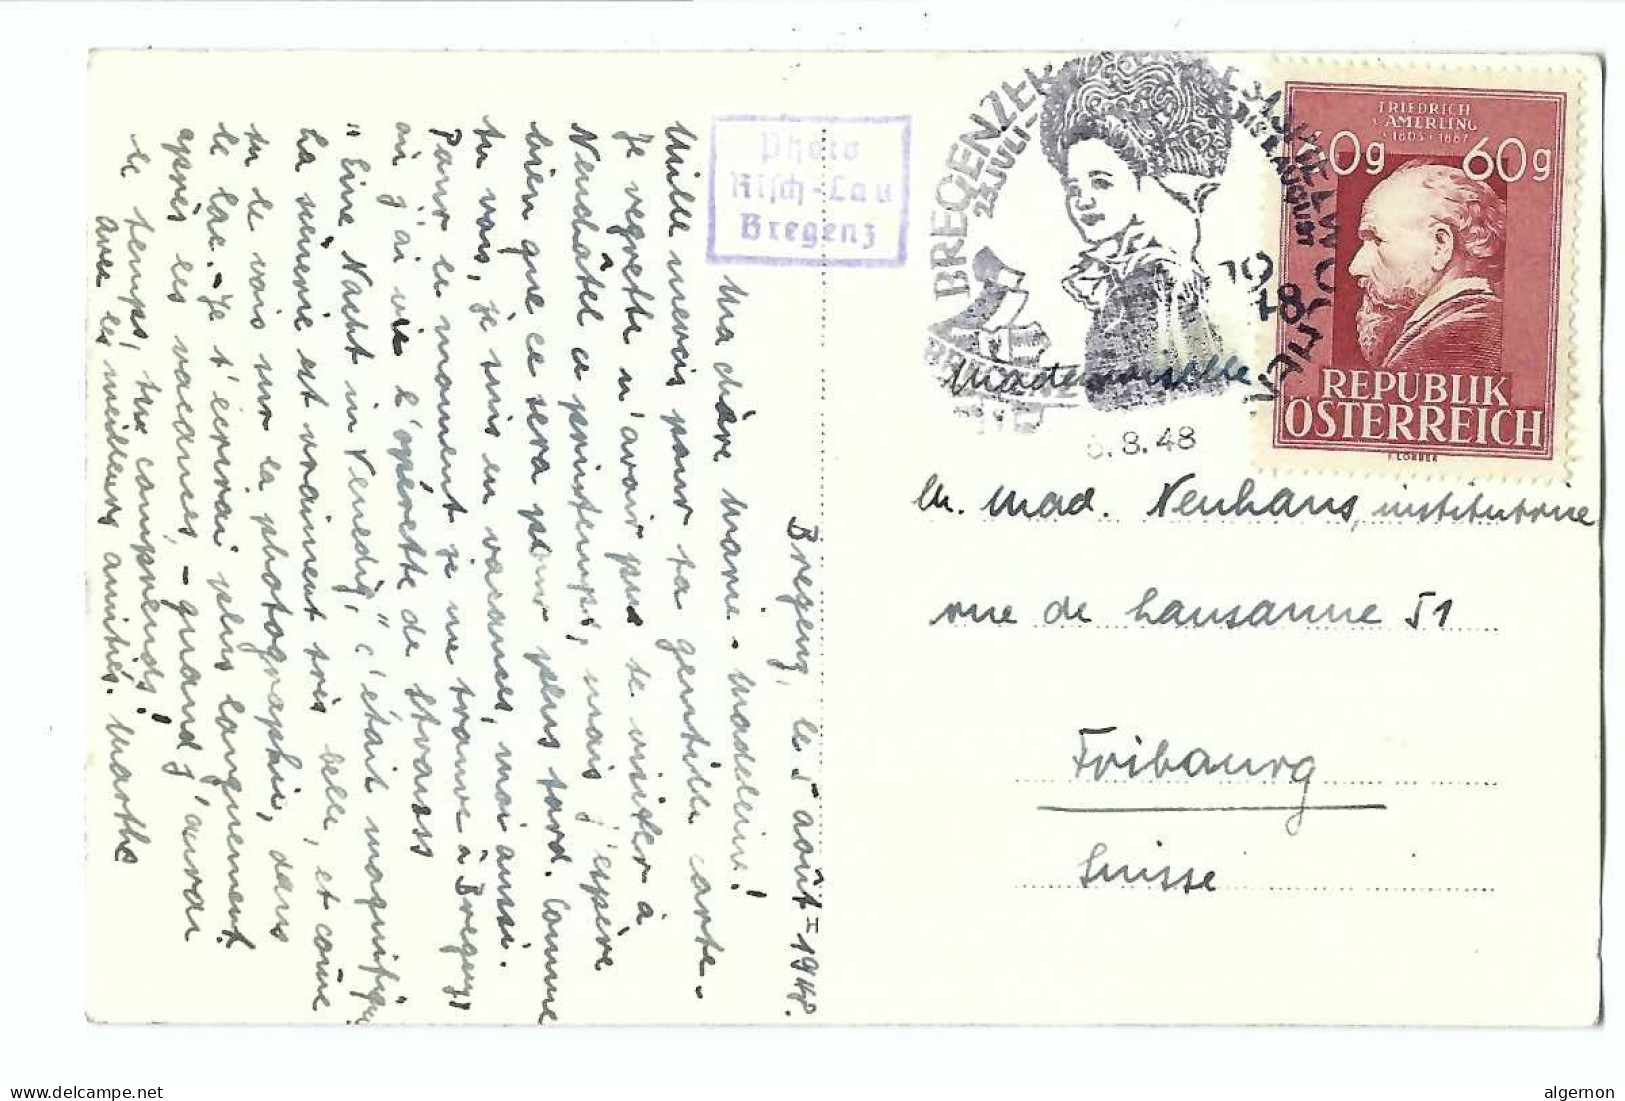 Bregenz, le 5 août 1948.
Ma chère Marie-Madeleine!
Mille mercis pour ta gentille carte.
Je regrette n'avoir pas te visiter à
Neuchâtel ce printemps, mais j'espère
bien que ce sera pour plus tard. Comme
tu vois, je suis en vacances, moi aussi.
Pour le moment je me trouve à Bregenz,
où j'ai vu l'opérette de Strauss
"Eine Nacht in Venedig", c'était magnifique
La scènerie est vraiment très belle, et comme
tu le vois sur la photographie, dans
le lac. - Je t'écrirai plus longuement
après les vacances, - quand j'aurai
le temps, tu comprends!
Avec les meilleurs amitiés. Marthe
Photo
Risch-Lau
Bregenz
BREGENZER FESTWOCHE
23. JULI BIS 8. AUGUST
1948
BREGENZ
6.8.48
FRIEDRICH
v. AMERLING
1803 • 1887
60g 60g
REPUBLIK
ÖSTERREICH
F. LORBER
Mademoiselle
M. Mad. Neuhaus, institutrice
rue de Lausanne 51
Fribourg
Suisse
delcampe.net
algernon